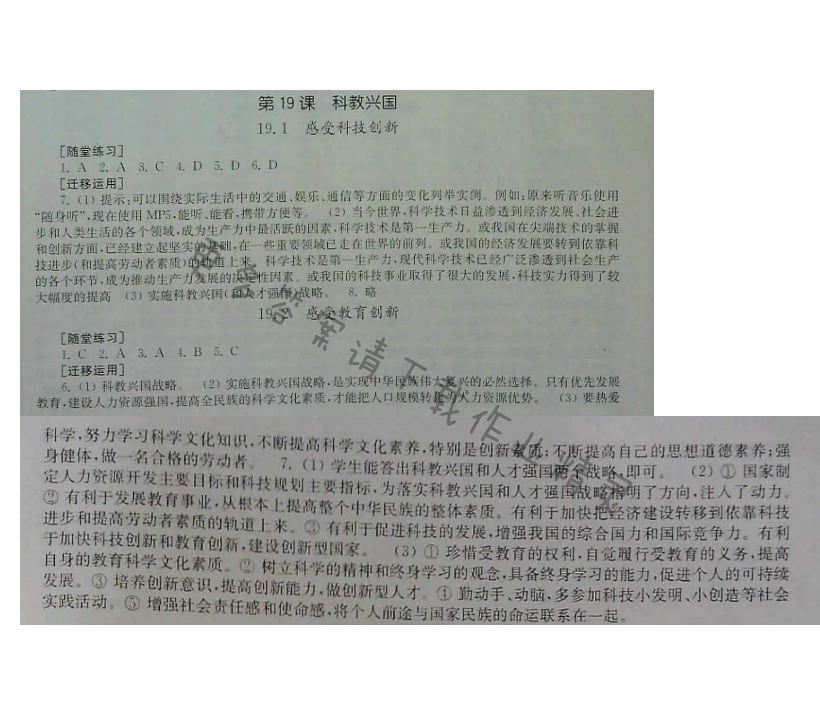 第 19 课 科教兴国
19.1 感受科技创新
[随堂练习]
1. A 2. A 3. C 4. D 5. D 6. D
[迁移运用]
7. (1) 提示:可以围绕实际生活中的交通、娱乐、通信等方面的变化列举实例。例如:原来听音乐使用
“随身听”,现在使用 MP5,能听、能看,携带方便等。 (2) 当今世界,科学技术日益渗透到经济发展、社会进
步和人类生活的各个领域,成为生产力中最活跃的因素,科学技术是第一生产力。或我国在尖端技术的掌握
和创新方面,已经建立起坚实的基础,在一些重要领域已走在世界的前列。或我国的经济发展要转到依靠科
技进步(和提高劳动者素质)的轨道上来。科学技术是第一生产力,现代科学技术已经广泛渗透到社会生产
的各个环节,成为推动生产力发展的决定性因素。或我国的科技事业取得了很大的发展,科技实力得到了较
大幅度的提高 (3) 实施科教兴国(和人才强国)战略。 8. 略
19.2 感受教育创新
[随堂练习]
1. C 2. A 3. A 4. B 5. C
[迁移运用]
6. (1) 科教兴国战略。 (2) 实施科教兴国战略,是实现中华民族伟大复兴的必然选择。只有优先发展
教育,建设人力资源强国,提高全民族的科学文化素质,才能把人口规模转化为人力资源优势。 (3) 要热爱
科学,努力学习科学文化知识,不断提高科学文化素养,特别是创新素质;不断提高自己的思想道德素养;强
身健体,做一名合格的劳动者。 7. (1) 学生能答出科教兴国和人才强国两个战略,即可。 (2) ① 国家制
定人力资源开发主要目标和科技规划主要指标,为落实科教兴国和人才强国战略指明了方向,注入了动力。
② 有利于发展教育事业,从根本上提高整个中华民族的整体素质。有利于加快把经济建设转移到依靠科技
进步和提高劳动者素质的轨道上来。③ 有利于促进科技的发展,增强我国的综合国力和国际竞争力。有利
于加快科技创新和教育创新,建设创新型国家。 (3) ① 珍惜受教育的权利,自觉履行受教育的义务,提高
自身的教育科学文化素质。② 树立科学的精神和终身学习的观念,具备终身学习的能力,促进个人的可持续
发展。③ 培养创新意识,提高创新能力,做创新型人才。④ 勤动手、动脑,多参加科技小发明、小创造等社会
实践活动。⑤ 增强社会责任感和使命感,将个人前途与国家民族的命运联系在一起。